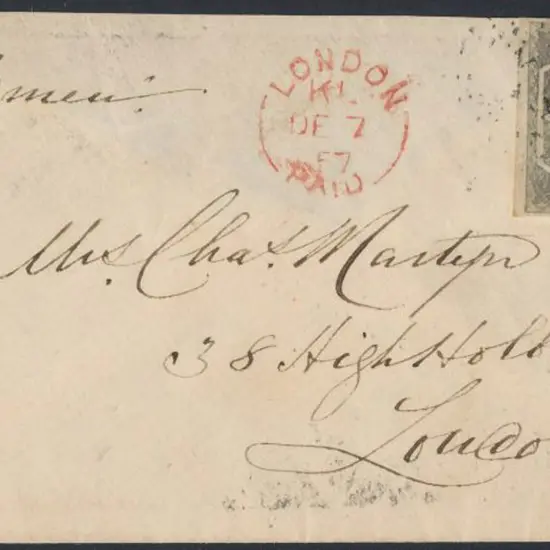 LONDON
KL
DE 7
57
PAID
Mrs. Chas. Martyn
38 High Holb
Londo